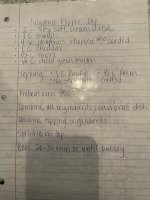 Jalapeno Popper Dip
2- 8oz soft cream cheese
1 C mayo
4-6 jalapenos chopped and seeded
1 C cheddar
1/2 C mozz
1/4 C diced green onion
Topping: 1 C Panko 1/2 C Parm
melted
Preheat oven 350
Combine all ingredients & oven proof dish
Combine topping ingredients
Sprinkle on top
Bake 20-30 min or until bubbly